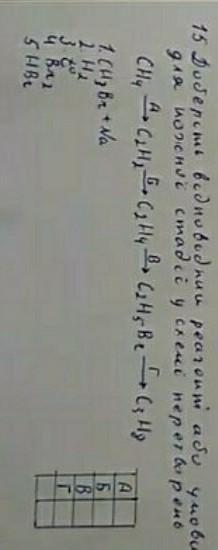 15 Доберіть відповідний реагент або умови
для кожної стадії у схемі перетворень
CH4 —А→ C2H2 —Б→ C2H4 —В→ C2H5Br —Г→ C3H8
1. CH3Br + Na
2 H2
3 t°
4 Br2
5 HBr
А
Б
В
Г